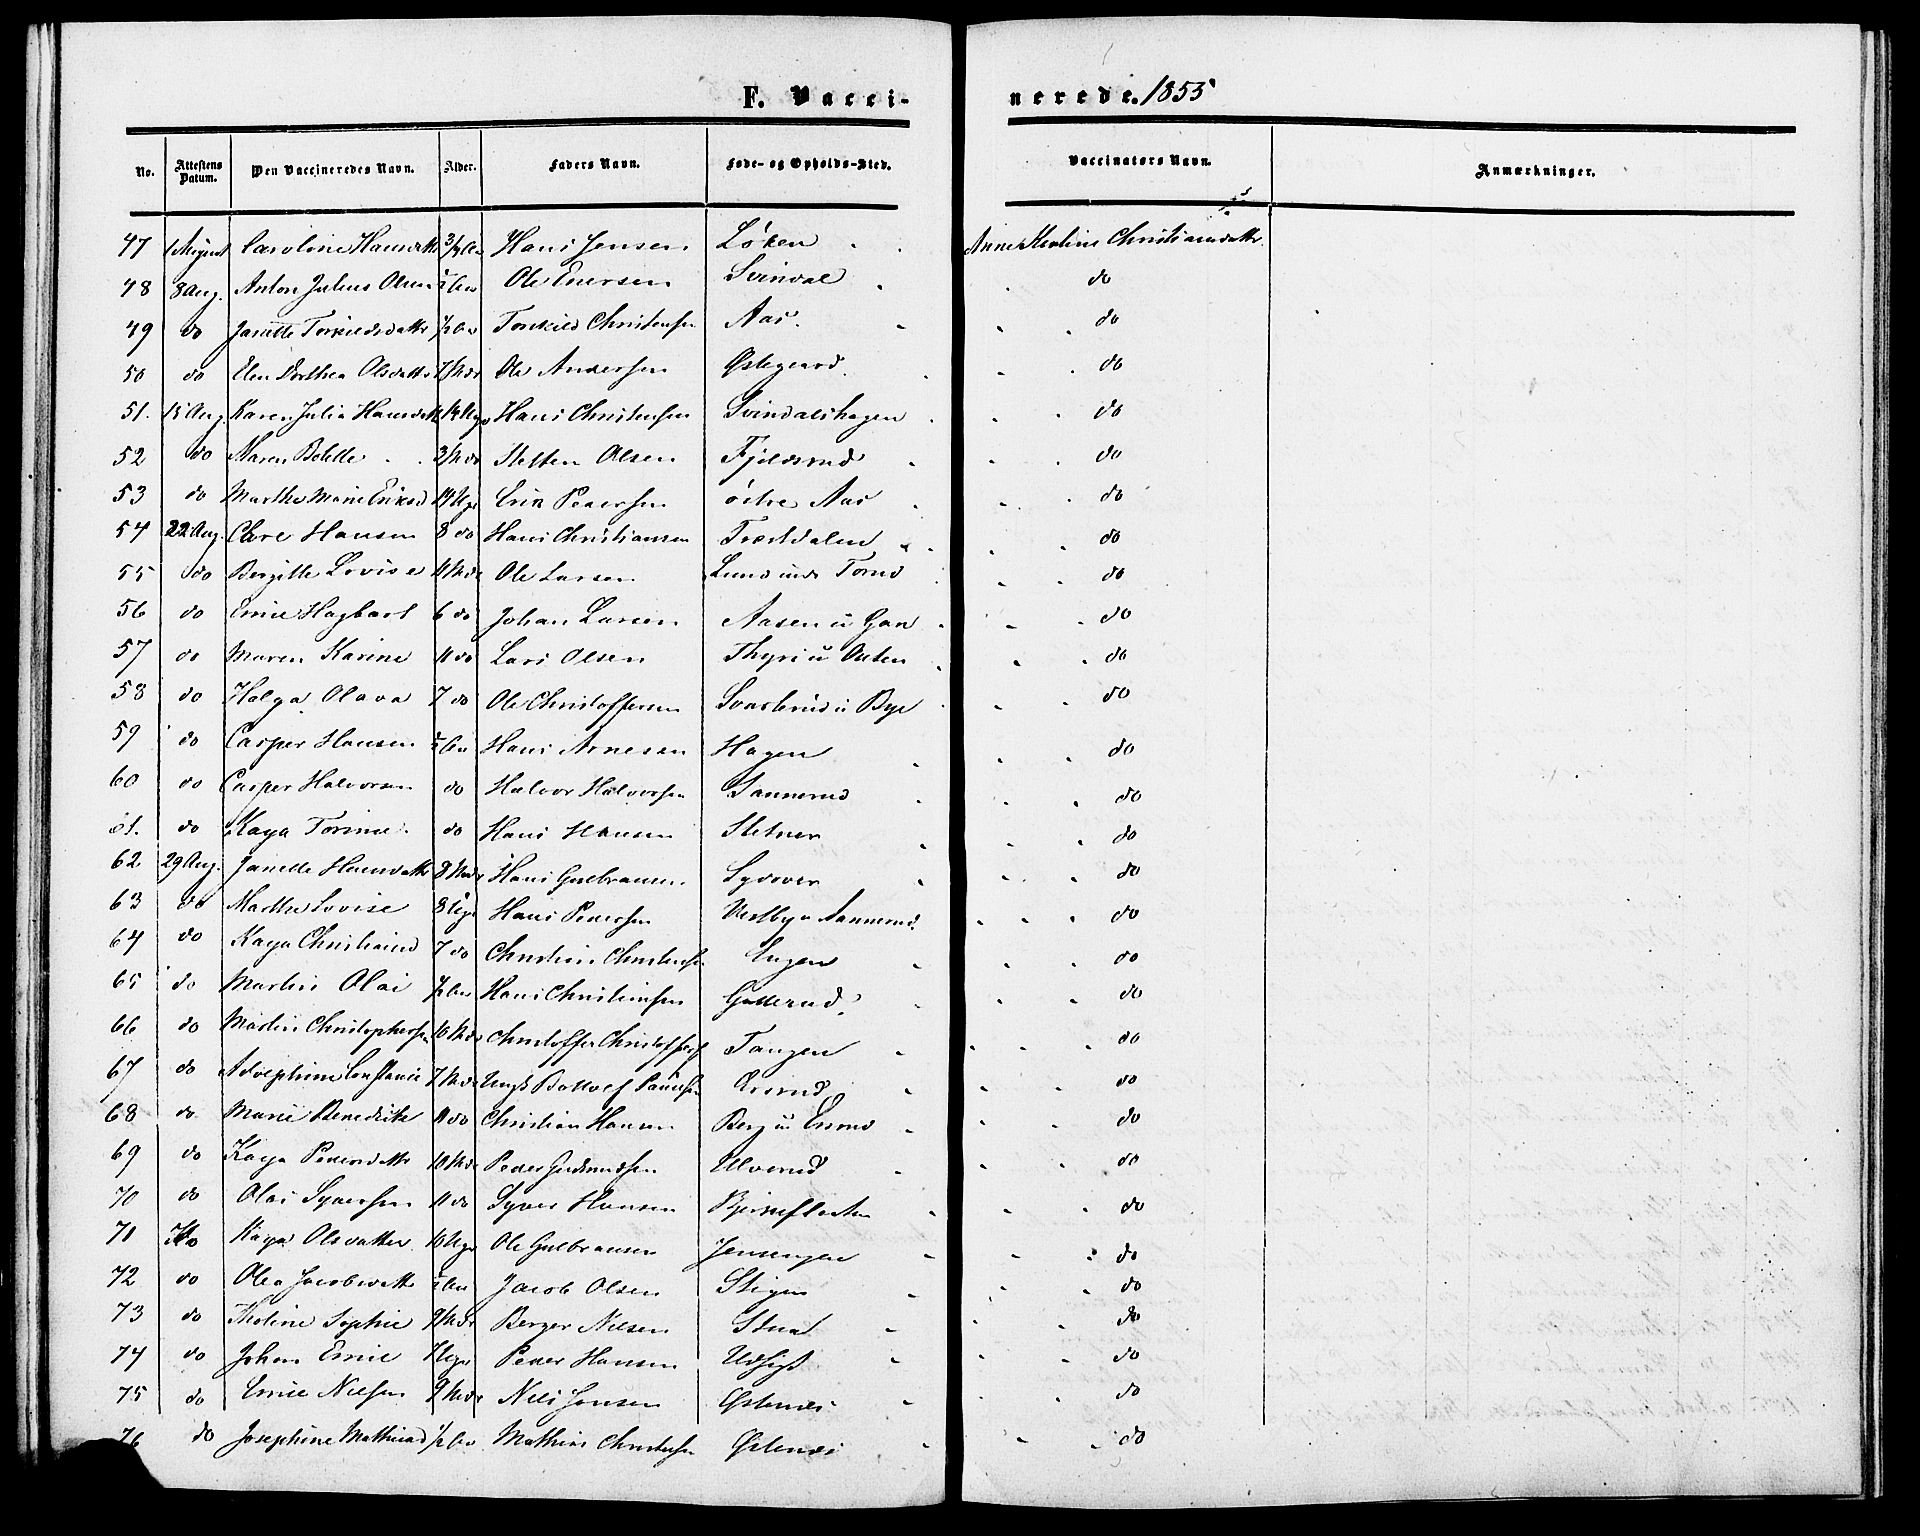 F. Vacci- nerede. 1855
No. Attestens Datum. Den Vaccineredes Navn. Alder. Faders Navn. Føde- og Opholds-Sted. Vaccinators Navn. Anmærkninger.
47 1 August Caroline Hansdatter 3/4 Aar Hans Jensen Løken Anne Christiansdatter
48 8 Aug. Anton Julius Olsen 1/2 Aar Ole Enersen Svindal do
49 do Janette Torkildsdatter 1/2 Aar Torkild Christensen Aas. do
50 do Elen Dorthea Olsdatter 7 Mdr Ole Andersen Østegaard. do
51. 15 Aug. Karen Julia Hansdatter Hans Christensen Svindalshagen do
52 do Maren Bolette 3 Mdr Olsen Fjeldsrud do
53 do Marthe Marie Eriksd 14 Uger Erik Pedersen østre Aas do
54 22 Aug. Hansen 8 do Hans Christiansen do
55 do Bergitte Lovise 11 Mdr Ole Larsen Lund und do
56 do Emil Hagbart 6 do Johan Larsen Aasen u do
57 do Maren Karine 11 do Lars Olsen Thyri u do
58 do Helga Olava 7 do Ole Christoffersen u Bye do
59 do Casper Hansen 1/2 Aar Hans Arnesen Hagen do
60 do Casper Halvorsen do Halvor Halvorsen Sannerud do
61. do Kaya Torine. do Hans Hansen Stetner do
62 29 Aug. Janette Hansdatter 8 Mdr Hans Gulbransen Sydover do
63 do Marthe Lovise 8 Uger Hans Pedersen Vestby u Sannerud do
64 do Kaya 7 do Christian Christensen Engen do
65 do Martin Olai 1/2 Aar Hans Christiansen Gullerud. do
66 do Martin Christophersen 10 Mdr Christoffer Christoffers Tangen do
67 do Constance 7 Mdr do
68 do Marie Benedicte 11 do Christian Hansen Berg u do
69 do Kaya Pedersdatter 10 Mdr Peder Gudmundsen Ulverud do
70 do Olai Syversen 11 do Syver Hansen do
71 do Kaya Olsdatter 10 Uger Ole Gulbransen Jensengen do
72 do Olea Jacobsdatter 1/2 Aar Jacob Olsen Stigen do
73 do Sophie 9 Mdr Berger Nielsen do
74 do Johan Emil Uger Peder Hansen Udsigt do
75 do Emil Nielsen 9 Mdr Nils Jensen do
76 do Josephine Mathiasd 1/2 Aar Mathias Christensen do